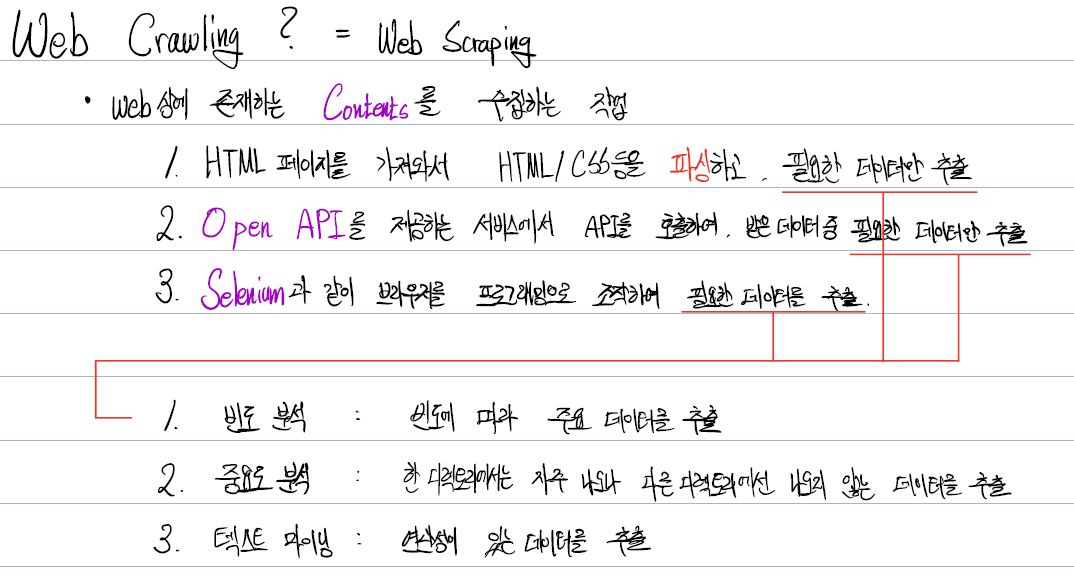 Web Crawling ? = Web Scraping
• Web상에 존재하는 Contents를 수집하는 작업
1. HTML 페이지를 가져와서 HTML/CSS등을 파싱하고, 필요한 데이터만 추출
2. Open API를 제공하는 서비스에서 API를 호출하여, 받은 데이터 중 필요한 데이터만 추출
3. Selenium과 같이 브라우저를 프로그래밍으로 조작하여 필요한 데이터를 추출.
1. 빈도 분석 : 빈도에 따라 주요 데이터를 추출
2. 중요도 분석 : 한 디렉토리에서는 자주 나오나 다른 디렉토리에선 나오지 않는 데이터를 추출
3. 텍스트 마이닝 : 연상성이 있는 데이터를 추출